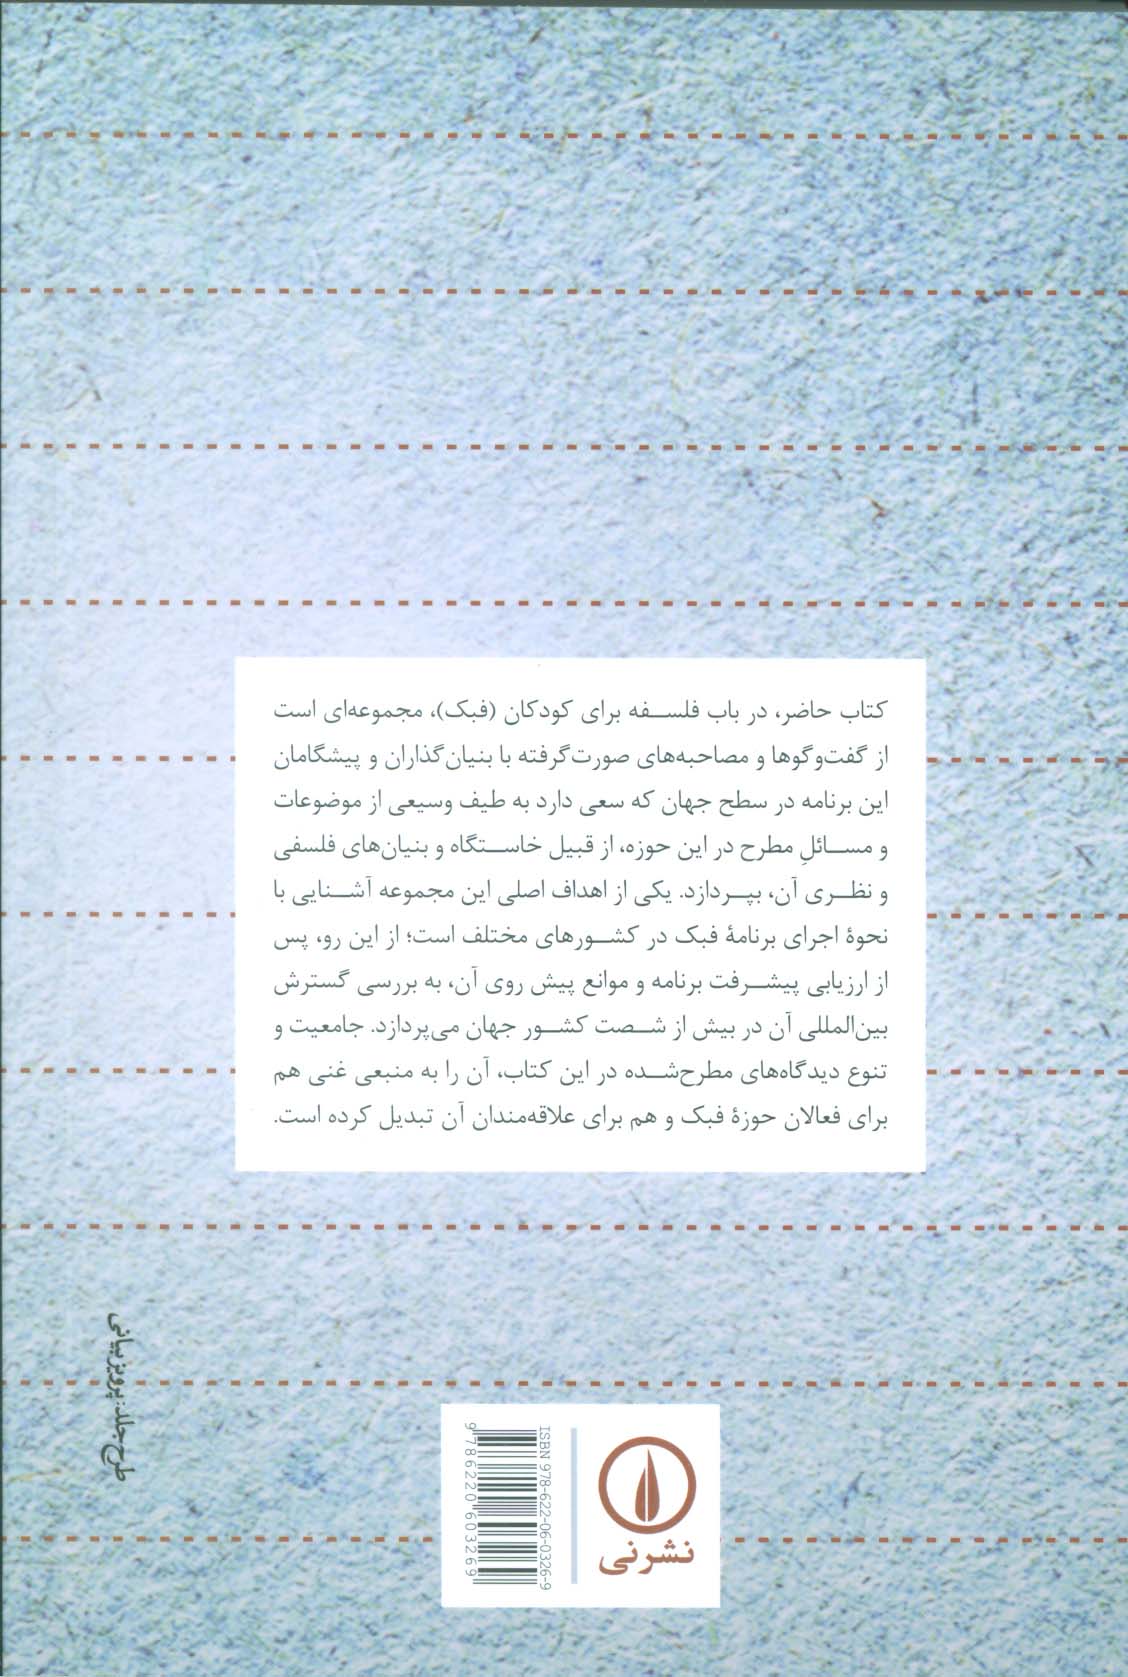 کتاب حاضر، در باب فلسفه برای کودکان (فبک)، مجموعه‌ای است
از گفت‌وگوها و مصاحبه‌های صورت‌گرفته با بنیان‌گذاران و پیشگامان
این برنامه در سطح جهان که سعی دارد به طیف وسیعی از موضوعات
و مسائلِ مطرح در این حوزه، از قبیل خاستگاه و بنیان‌های فلسفی
و نظری آن، بپردازد. یکی از اهداف اصلی این مجموعه آشنایی با
نحوهٔ اجرای برنامهٔ فبک در کشورهای مختلف است؛ از این رو، پس
از ارزیابی پیشرفت برنامه و موانع پیش روی آن، به بررسی گسترش
بین‌المللی آن در بیش از شصت کشور جهان می‌پردازد. جامعیت و
تنوع دیدگاه‌های مطرح‌شده در این کتاب، آن را به منبعی غنی هم
برای فعالان حوزهٔ فبک و هم برای علاقه‌مندان آن تبدیل کرده است.
طرح جلد: پرویز بیانی
نشرنی
ISBN 978-622-06-0326-9
9 786220 603269